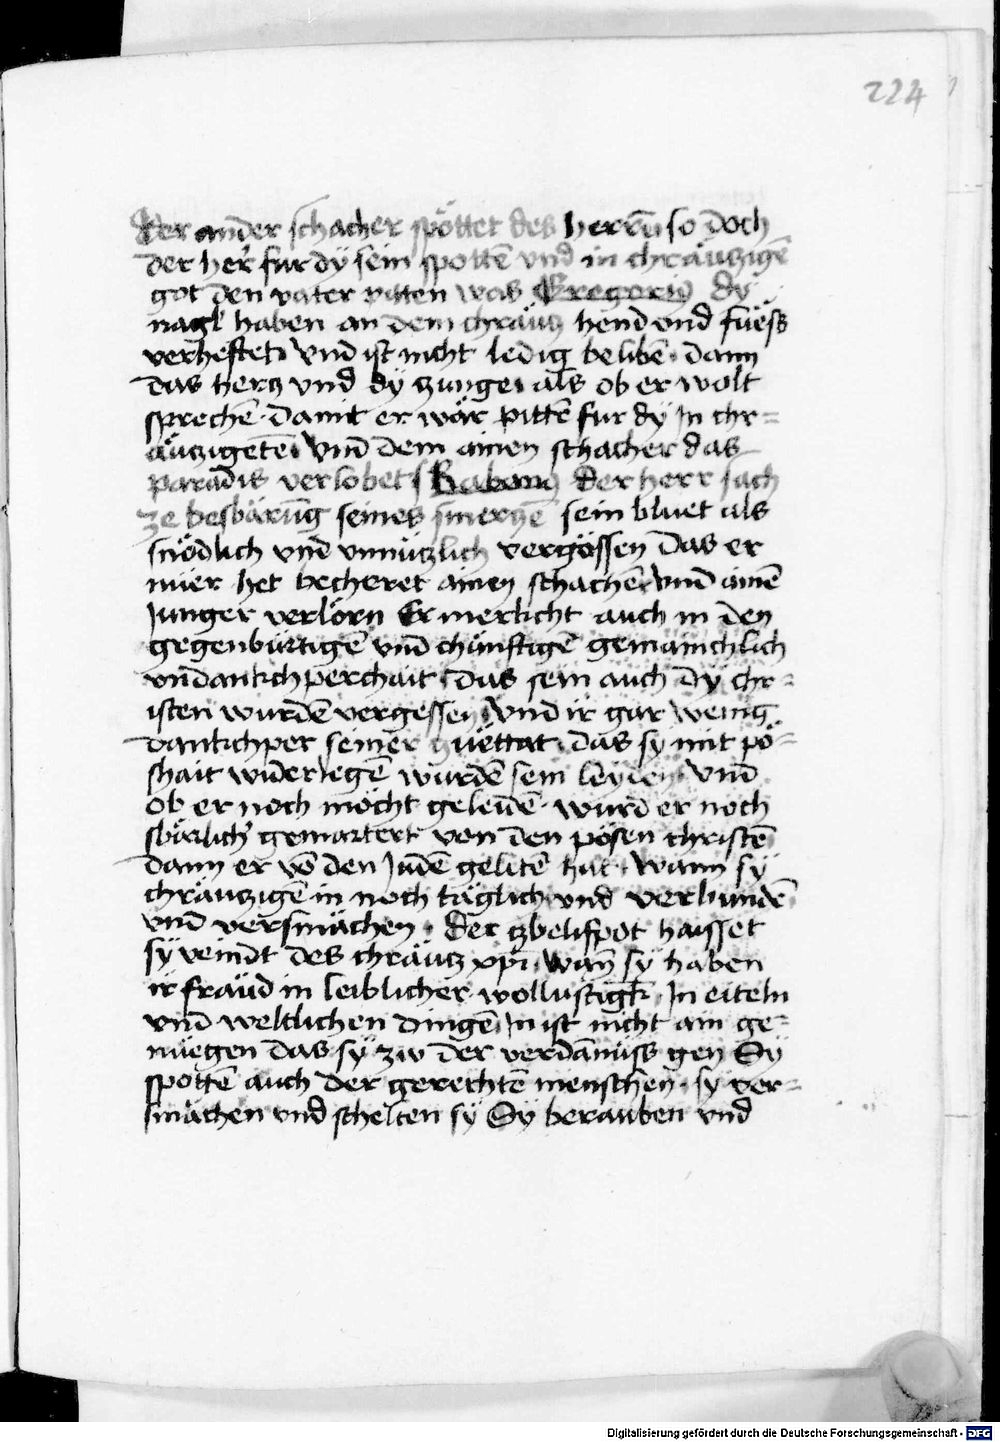 224
Der ander schacher spöttet des herrñ so doch
der her fur dÿ sein spottē vnd in chräuczigē
got den vater pitten was Gregorÿ dÿ
nagl haben an dem chräutz hend vnd füess
verheftet vnd ist nicht ledig belibē dann
das hertz vnd dÿ zunge als ob er wolt
sprechē damit er wär pittē fur dÿ In chr=
äuczigetē Vnd dem ainen schacher das
paradis verlobet Der herr sach
ze besbärūg seines smerczē sein bluet als
snödlich vnd vnnüczlich vergössen Das er
nuer het becheret ainen schacher vnd ainē
Junger verlörn Er merkcht auch in den
gegenbürtigē vnd chünftigē gemainchlich
vndankchperchait Das sein auch dÿ chr=
isten wurdē vergessen vnd ir gar wenig
dankchper seiner guettat das sÿ mit pö=
shait widerlegē wurdē sein leyden Vnd
ob er noch möcht geleidē wurd er noch
sbärlich gemartert von den pösen christē
dann er vō den Judē gelitē hat Wann sÿ
chräuczigē in noch täglich vnd verbundē
vnd versmächen Der haisset
sÿ veindt des chräutz xpi Wañ sÿ haben
ir fräud in leiblicher wollustigk In eiteln
vnd weltlichen dingē In ist nicht ain ge=
nuegen das sÿ zw der verdāmüss gen Sÿ
spottē auch der gerechtē menschen sÿ ver=
smächen vnd schelten sÿ Sÿ berauben vnd
Digitalisierung gefördert durch die Deutsche Forschungsgemeinschaft - DFG